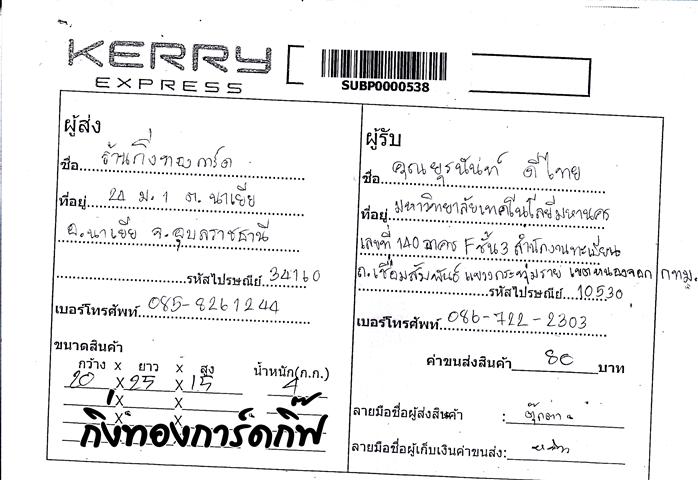 KERRY
EXPRESS
SUBP0000538
ผู้ส่ง
ชื่อ ร้านกิ่งทองการ์ด
ที่อยู่ 21 ม.1 ต.นาเยีย
อ.นาเยีย จ.อุบลราชธานี
รหัสไปรษณีย์ 34160
เบอร์โทรศัพท์ 085-8261244
ขนาดสินค้า
กว้าง x ยาว x สูง น้ำหนัก(ก.ก.)
20 x 25 x 15 4
x x
x x
x
กิ่งทองการ์ดกิ๊ฟ
ผู้รับ
ชื่อ คุณยุรนันท์ ดีไทย
ที่อยู่ มหาวิทยาลัยเทคโนโลยีมหานคร
เลขที่ 140 อาคาร F ชั้น 3 สำนักงานทะเบียน
ถ.เชื่อมสัมพันธ์ แขวงกระทุ่มราย เขตหนองจอก กทม.
รหัสไปรษณีย์ 10530
เบอร์โทรศัพท์ 086-722-2303
ค่าขนส่งสินค้า 80 บาท
ลายมือชื่อผู้ส่งสินค้า :
ลายมือชื่อผู้เก็บเงินค่าขนส่ง: